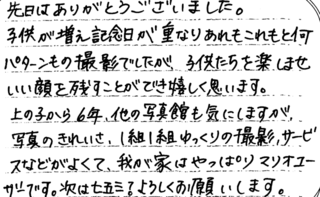 先日はありがとうございました。
子供が増え記念日が重なりあれもこれもと何
パターンもの撮影でしたが、子供たちを楽しませ
いい顔を残すことができ嬉しく思います。
上の子から6年、他の写真館も気にしますが、
写真のきれいさ、1組1組ゆっくりの撮影、サービ
スなどがよくて、我が家はやっぱりマリオユー
ザーです。次は七五三でよろしくお願いします。